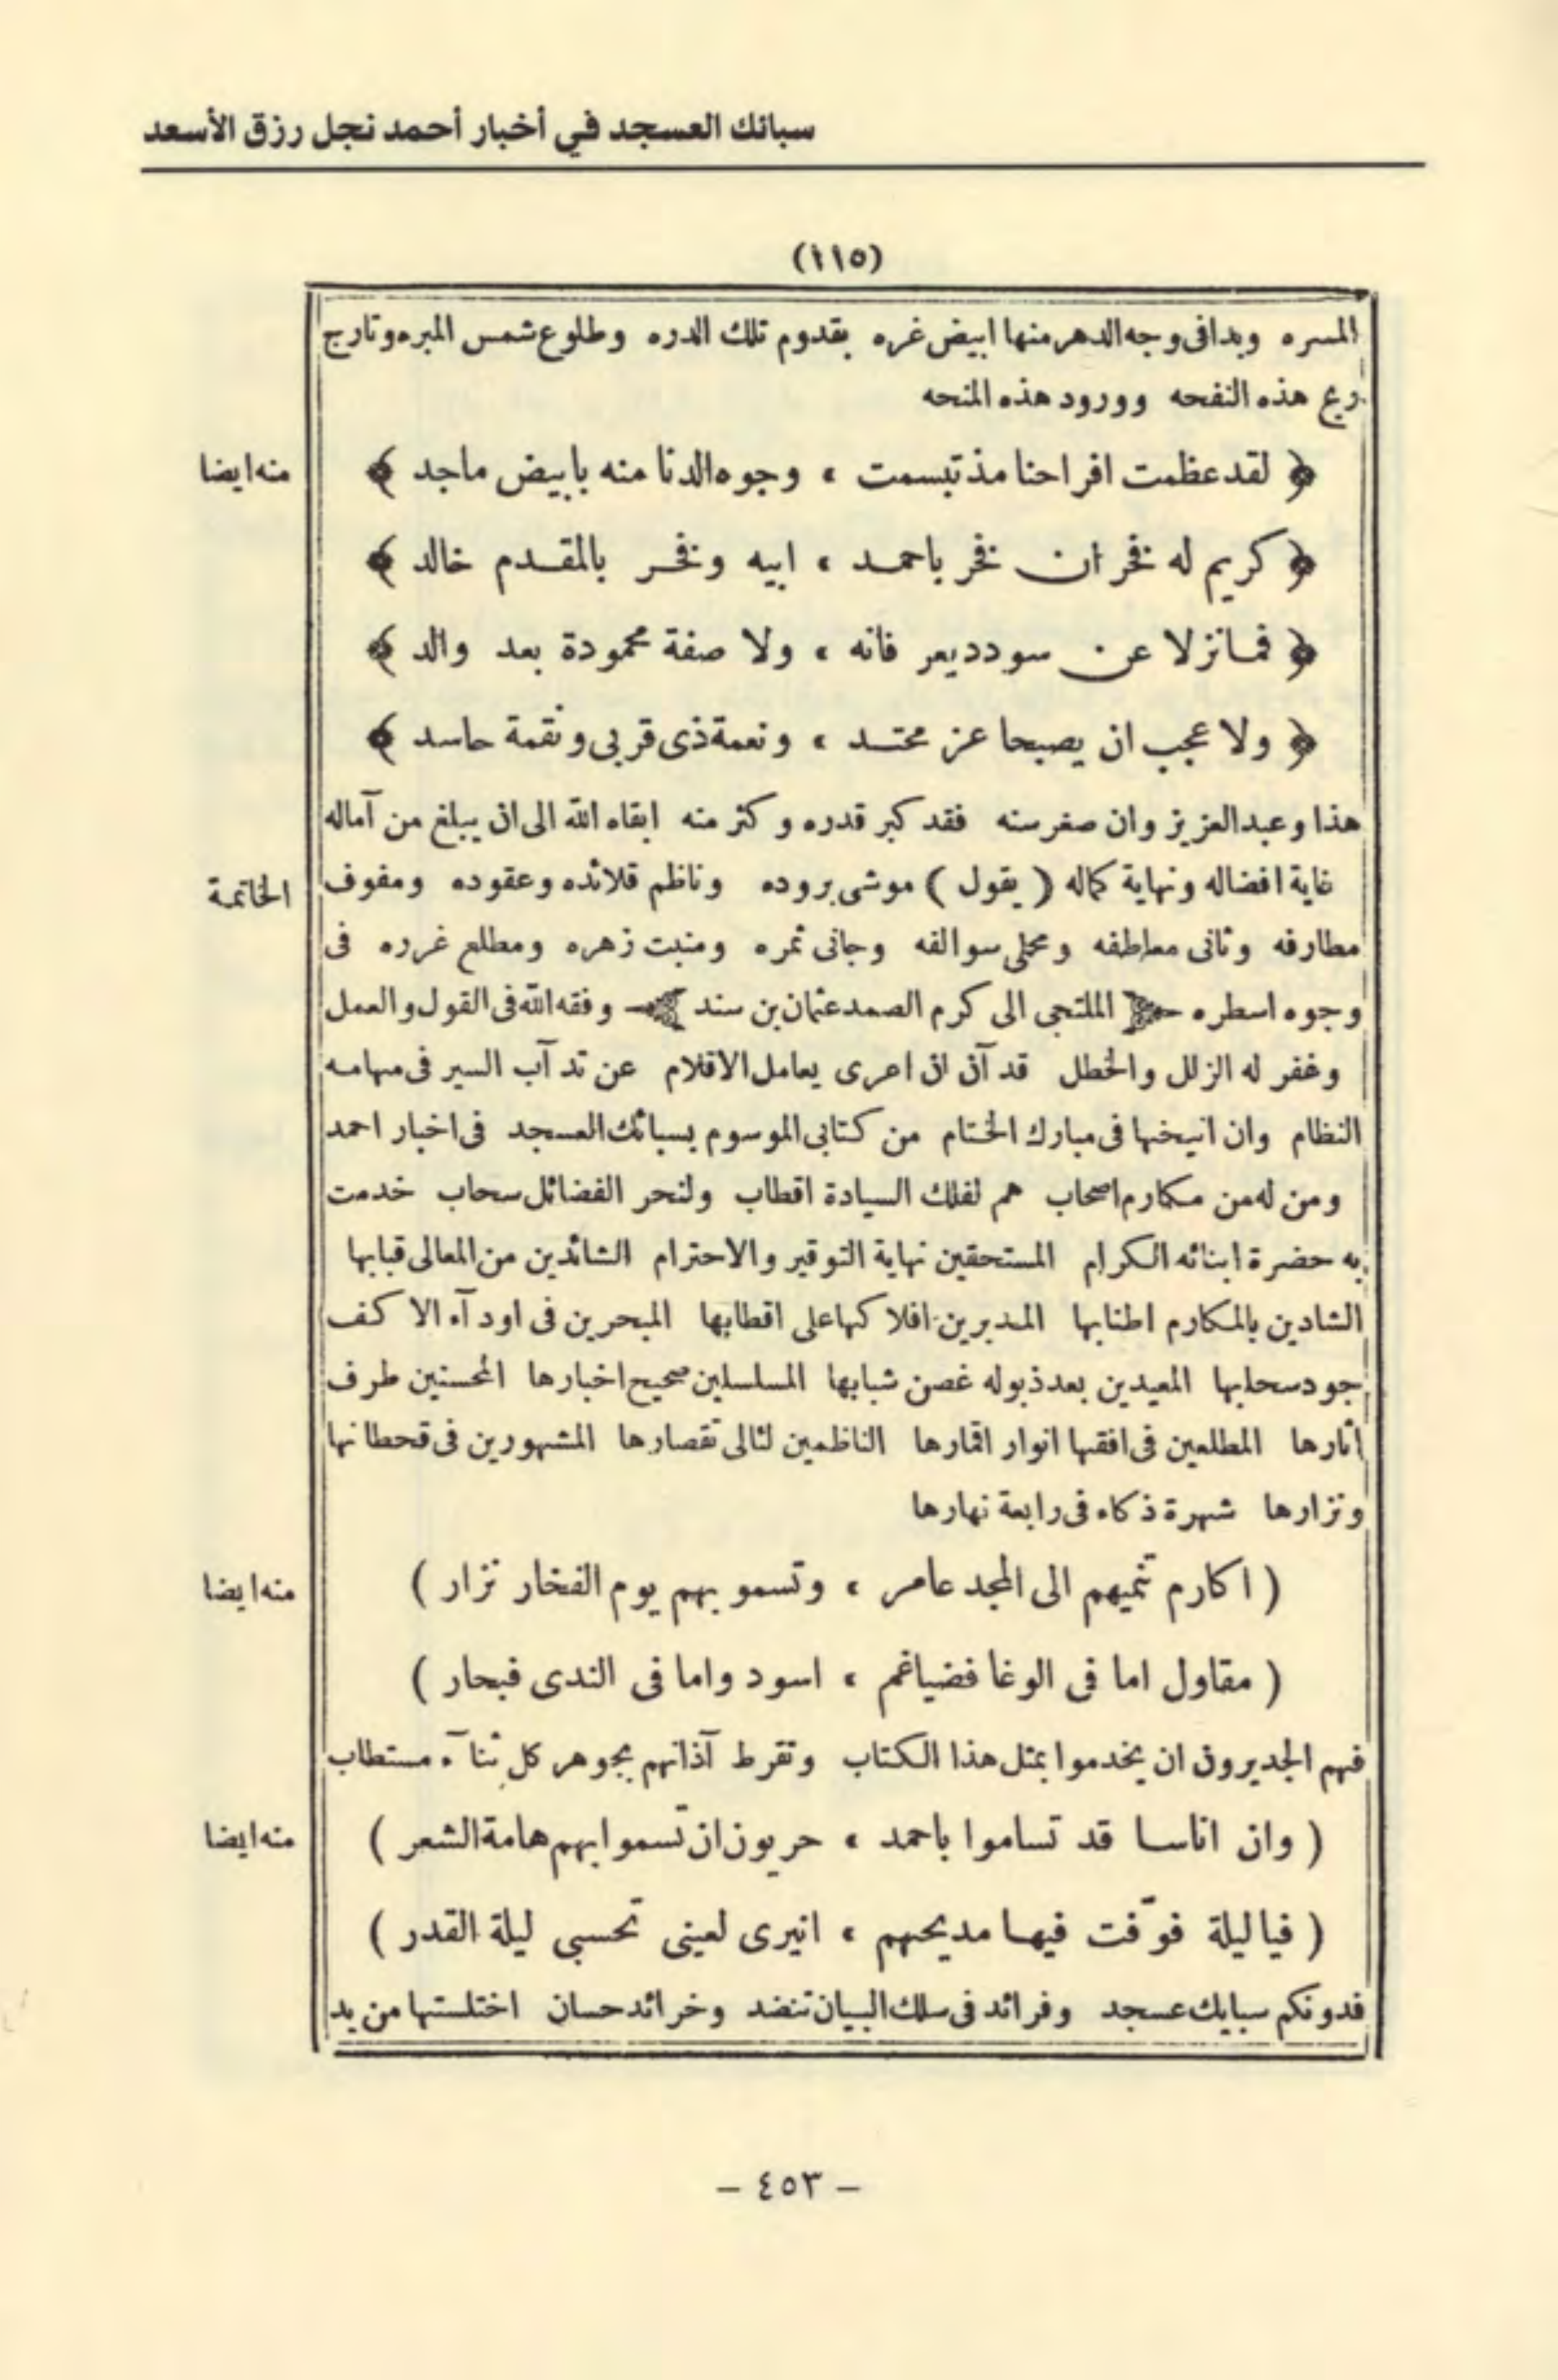 سبائك العسجد في أخبار أحمد نجل رزق الأسعد
(١١٥)
المسره وبدا فى وجه الدهر منها ابيض غره بقدوم تلك الدره وطلوع شمس المبره وتارج
ريح هذه النفحه وورود هذه المنحه
﴿ لقد عظمت افراحنا مذ تبسمت ، وجوه الدنا منه بابيض ماجد ﴾
منه ايضا
﴿ كريم له فخران فخر باحمد ، ابيه وفخر بالمقدم خالد ﴾
﴿ فما نزلا عن سودد يعرفانه ، ولا صفة محمودة بعد والد ﴾
﴿ ولا عجب ان يصبحا عز محتد ، ونعمة ذى قربى ونقمة حاسد ﴾
هذا وعبد العزيز وان صغر سنه فقد كبر قدره وكثر منه ابقاه الله الى ان يبلغ من آماله
غاية افضاله ونهاية كماله ( يقول ) موشى بروده وناظم قلائده وعقوده ومفوف
الخاتمة
مطارفه وثانى معاطفه ومحلى سوالفه وجانى ثمره ومنبت زهره ومطلع غرره فى
وجوه اسطره الملتجى الى كرم الصمد عثمان بن سند وفقه الله فى القول والعمل
وغفر له الزلل والخطل قد آن ان اعرى يعامل الاقلام عن تد آب السير فى مهامه
النظام وان انيخها فى مبارك الختام من كتابى الموسوم بسبائك العسجد فى اخبار احمد
ومن له من مكارم اصحاب هم لفلك السيادة اقطاب ولنحر الفضائل سحاب خدمت
به حضرة ابنائه الكرام المستحقين نهاية التوقير والاحترام الشائدين من المعالى قبابها
الشادين بالمكارم اطنابها المديرين افلاكها على اقطابها المبحرين فى اودآء الاكف
جود سحابها المعيدين بعد ذبوله غصن شبابها المسلسلين صحيح اخبارها المحسنين طرف
أثارها المطلعين فى افقها انوار اقمارها الناظمين لئالى تقصارها المشهورين فى قحطانها
ونزارها شهرة ذكاء فى رابعة نهارها
( اكارم تنميهم الى المجد عامر ، وتسمو بهم يوم الفخار نزار )
منه ايضا
( مقاول اما فى الوغا فضياغم ، اسود واما فى الندى فبحار )
فهم الجديرون ان يخدموا بمثل هذا الكتاب وتقرط آذانهم بجوهر كل ثنآء مستطاب
( وان اناسا قد تساموا باحمد ، حريون ان تسموا بهم هامة الشعر )
منه ايضا
( فيا ليلة فوّفت فيها مديحهم ، انيرى لعينى تحسبى ليلة القدر )
فدونكم سبايك عسجد وفرائد فى سلك البيان تنضد وخرائد حسان اختلستها من يد
– ٤٥٣ –